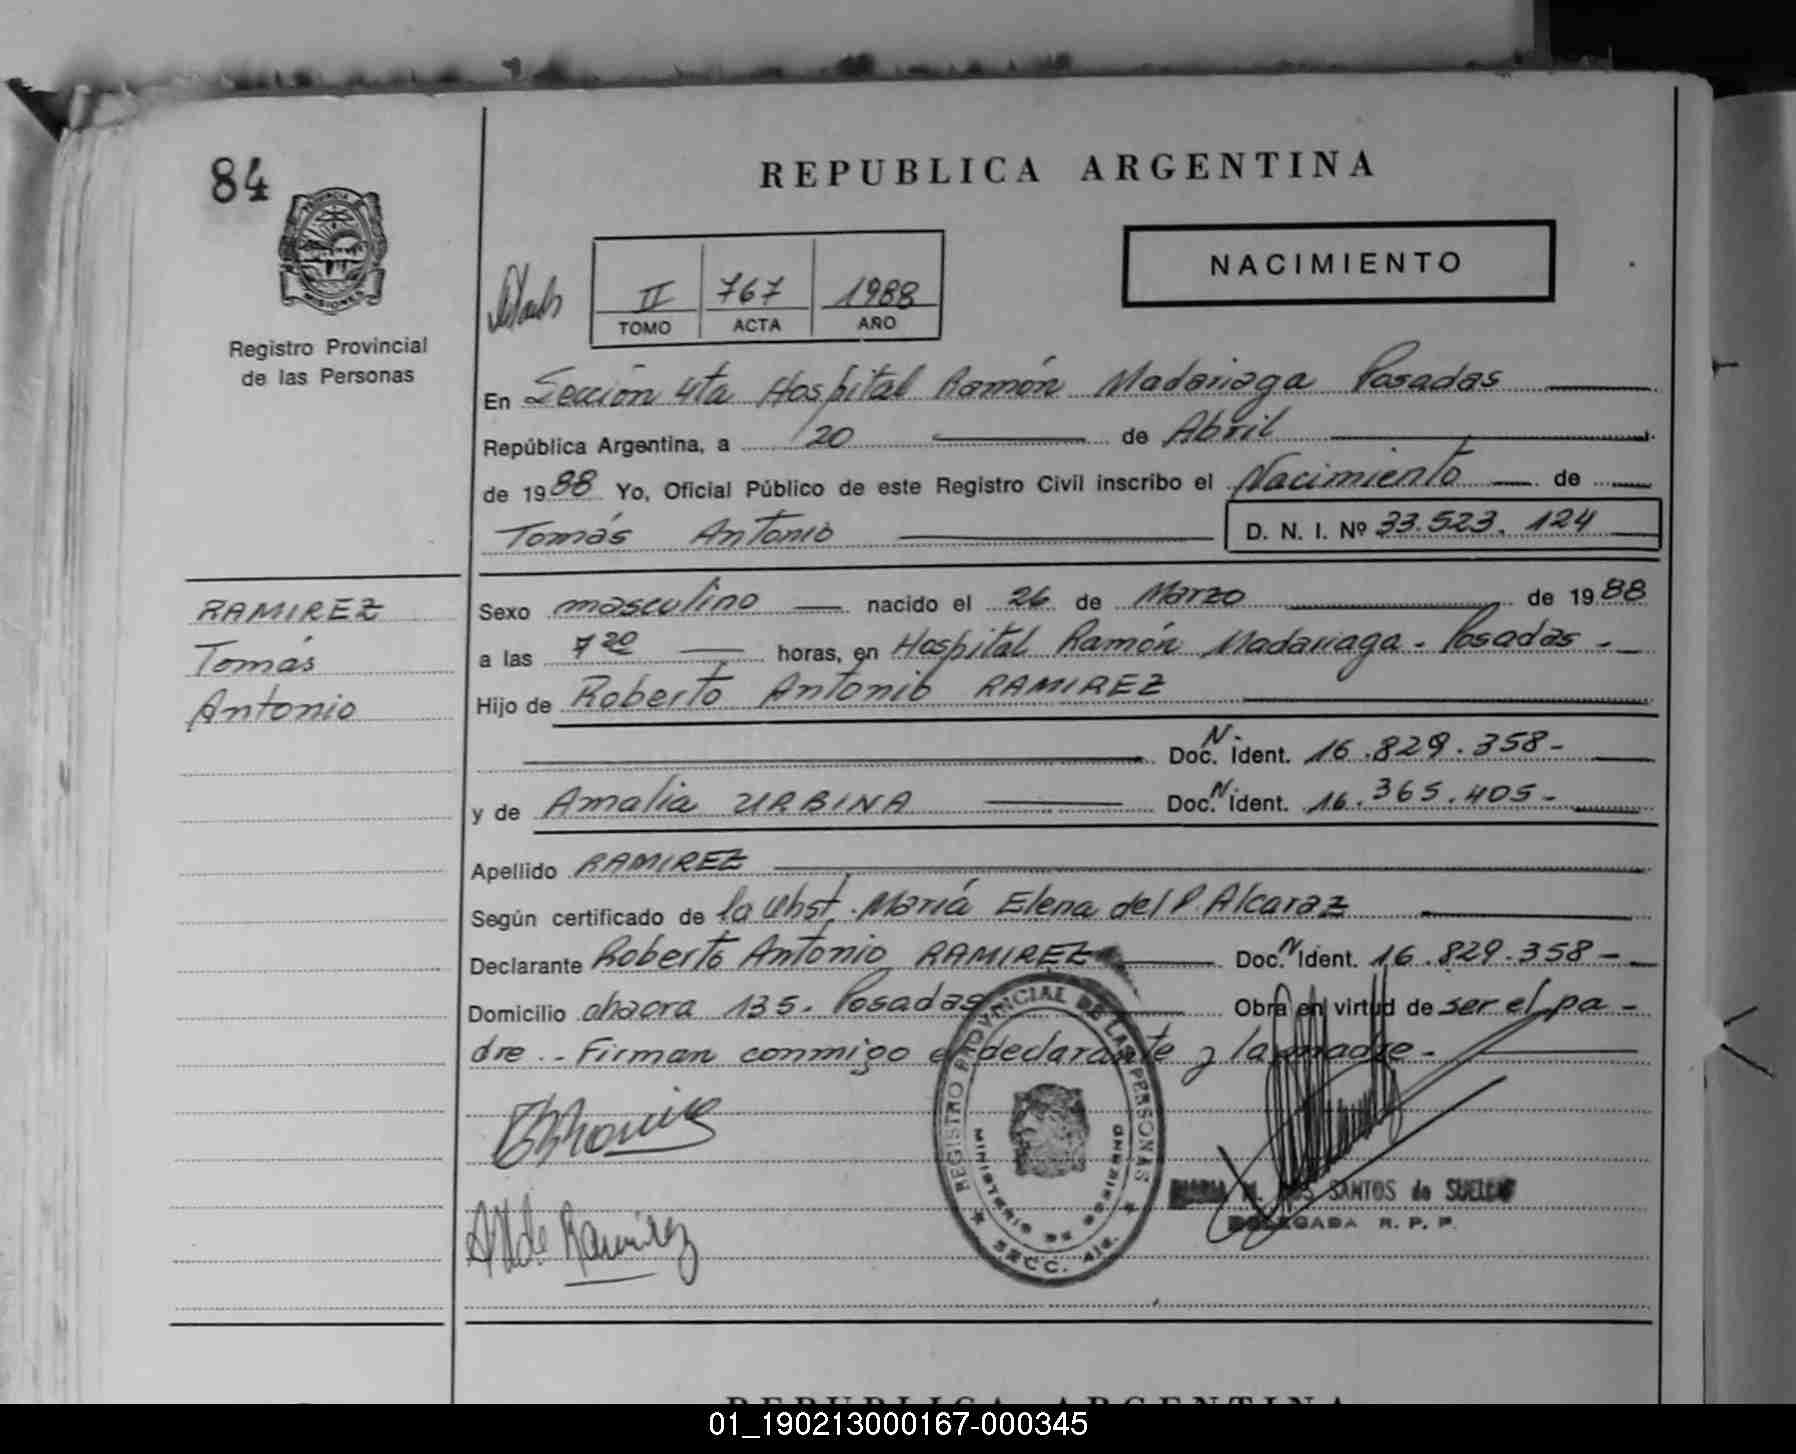 84
PROVINCIA DE
MISIONES
Registro Provincial
de las Personas
REPUBLICA ARGENTINA
NACIMIENTO
II 767 1988
TOMO ACTA AÑO
En Sección 4ta Hospital Ramón Madariaga Posadas
República Argentina, a 20 de Abril
de 1988 Yo, Oficial Público de este Registro Civil inscribo el Nacimiento de
Tomás Antonio D. N. I. Nº 33.523.124
RAMIREZ
Tomás
Antonio
Sexo masculino nacido el 26 de Marzo de 1988
a las 7 20 horas, en Hospital Ramón Madariaga - Posadas -
Hijo de Roberto Antonio RAMIREZ
Doc. N. Ident. 16.829.358-
y de Amalia URBINA Doc. N. Ident. 16.365.405-
Apellido RAMIREZ
Según certificado de la Obst. María Elena del P. Alcaraz
Declarante Roberto Antonio RAMIREZ Doc. N Ident. 16.829.358-
Domicilio chacra 135. Posadas Obra en virtud de ser el pa-
dre.- Firman conmigo el declarante y la madre-
REGISTRO PROVINCIAL DE LAS PERSONAS
MINISTERIO DE GOBIERNO
SECC. 4ta.
A U de Ramirez
MARIA M. DOS SANTOS de
DELEGADA R. P. P.
REPUBLICA ARGENTINA
01_190213000167-000345